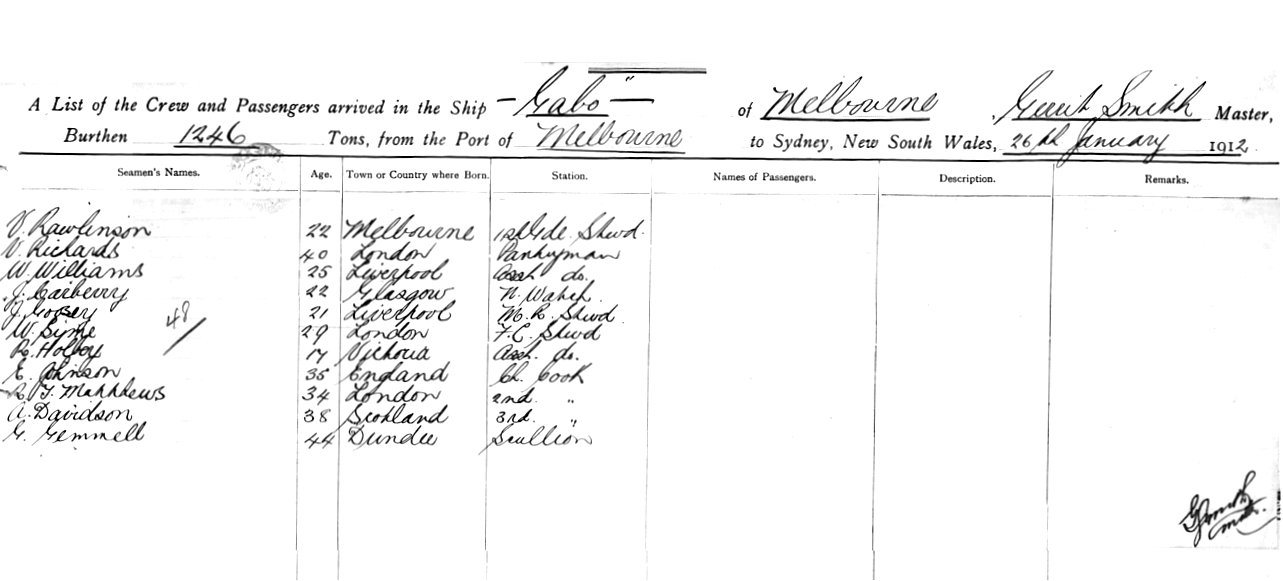 A List of the Crew and Passengers arrived in the Ship — "Gabo" — of Melbourne, Gerrit Smith Master,
Burthen 1246 Tons, from the Port of Melbourne to Sydney, New South Wales, 26th January 1912
Seamen's Names. Age. Town or Country where Born. Station. Names of Passengers. Description. Remarks.
V. Rawlinson 22 Melbourne 1st Gde. Stwd.
V. Richards 40 London Pantryman
W. Williams 25 Liverpool Asst. do.
J. Carberry 22 Glasgow N. Watch.
J. Goosey 21 Liverpool M. R. Stwd
W. Sime 29 London F.C. Stwd
R. Holboy 17 Victoria Asst. do.
48
E. Johnson 35 England Ch. Cook
R. J. Matthews 34 London 2nd. "
A. Davidson 38 Scotland 3rd. "
G. Gemmell 44 Dundee Scullion